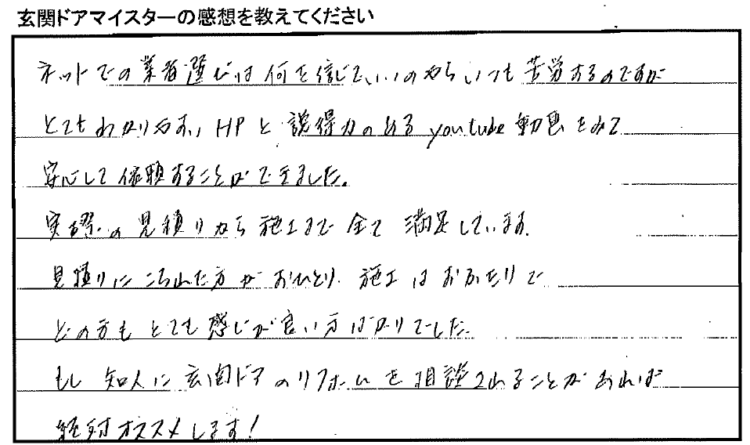 玄関ドアマイスターの感想を教えてください
ネットでの業者選びは何を信じていいのやらいつも苦労するのですが
とてもわかりやすいHPと説得力のあるyoutube動画をみて
安心して依頼することができました。
実際の見積りから施工まで全て満足しています。
見積りにこられた方がおひとり、施工はおふたりで
どの方もとても感じが良い方ばかりでした。
もし知人に玄関ドアのリフォームを相談されることがあれば
絶対オススメします!